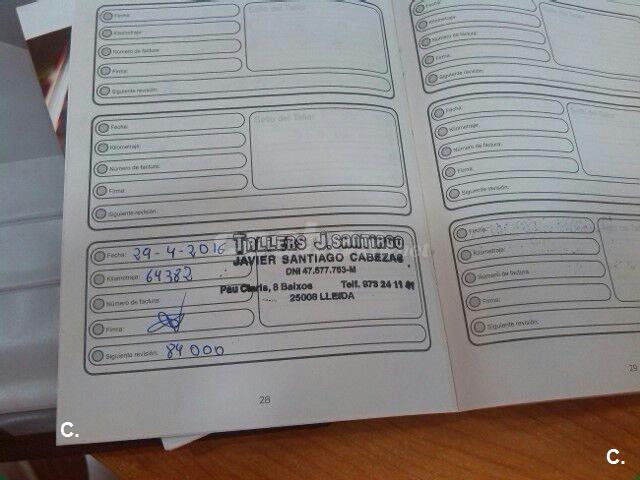 Fecha:
Kilometraje:
Número de factura:
Firma:
Siguiente revisión:
Sello del Taller
Fecha:
Kilometraje:
Número de factura:
Firma:
Siguiente revisión:
Sello del Taller
Fecha: 29-4-2016
Kilometraje: 64382
Número de factura:
Firma:
Siguiente revisión: 84000
TALLERS J.SANTIAGO
JAVIER SANTIAGO CABEZAS
DNI 47.677.763-M
Pau Claris, 8 Baixos Telf. 973 24 11
25008 LLEIDA
28
Fecha:
Kilometraje:
Número de factura:
Firma:
Siguiente revisión:
Fecha:
Kilometraje:
Número de factura:
Firma:
Siguiente revisión:
Fecha:
Kilometraje:
Número de factura:
Firma:
Siguiente revisión:
29
C.
C.